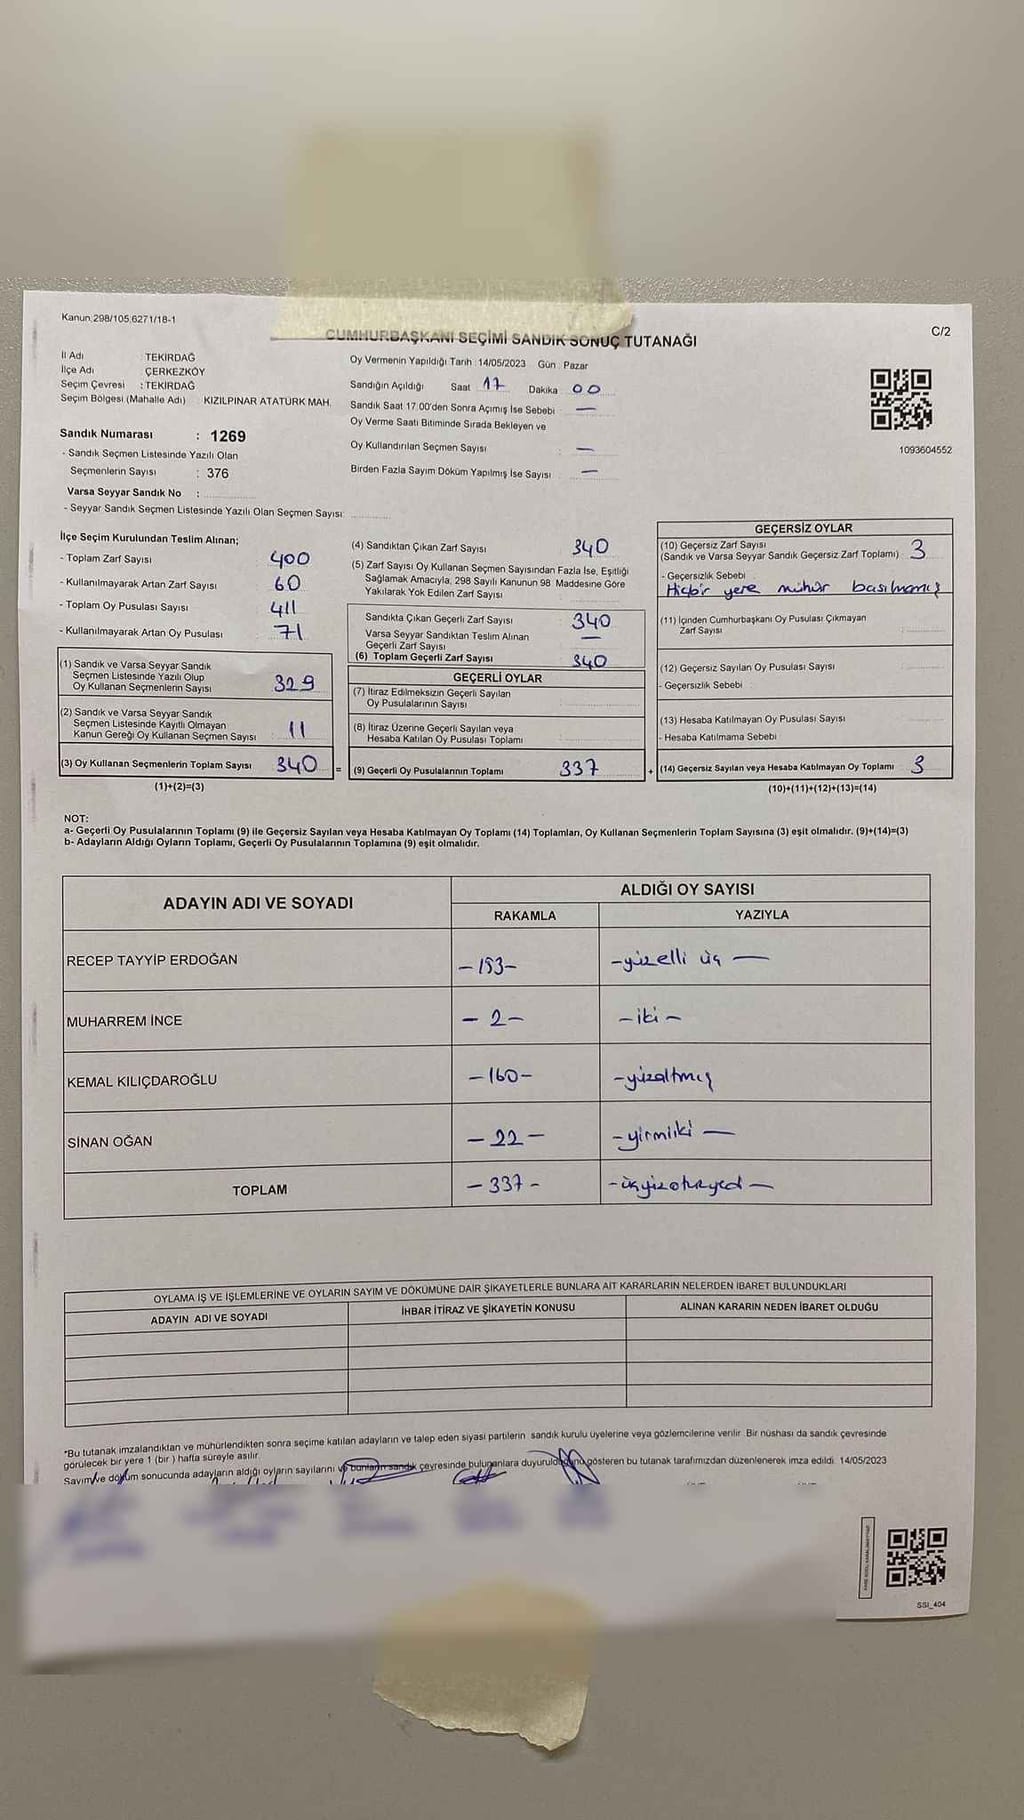 Kanun:298/105,6271/18-1
C/2
CUMHURBAŞKANI SEÇİMİ SANDIK SONUÇ TUTANAĞI
İl Adı : TEKİRDAĞ
İlçe Adı : ÇERKEZKÖY
Seçim Çevresi : TEKİRDAĞ
Seçim Bölgesi (Mahalle Adı) : KIZILPINAR ATATÜRK MAH.
Sandık Numarası : 1269
- Sandık Seçmen Listesinde Yazılı Olan
Seçmenlerin Sayısı : 376
Varsa Seyyar Sandık No :
- Seyyar Sandık Seçmen Listesinde Yazılı Olan Seçmen Sayısı:
Oy Vermenin Yapıldığı Tarih : 14/05/2023 Gün : Pazar
Sandığın Açıldığı Saat 17 Dakika 00
Sandık Saat 17:00'den Sonra Açımış İse Sebebi —
Oy Verme Saati Bitiminde Sırada Bekleyen ve
Oy Kullandırılan Seçmen Sayısı —
Birden Fazla Sayım Döküm Yapılmış İse Sayısı —
1093604552
İlçe Seçim Kurulundan Teslim Alınan;
- Toplam Zarf Sayısı 400
- Kullanılmayarak Artan Zarf Sayısı 60
- Toplam Oy Pusulası Sayısı 411
- Kullanılmayarak Artan Oy Pusulası 71
(1) Sandık ve Varsa Seyyar Sandık
Seçmen Listesinde Yazılı Olup
Oy Kullanan Seçmenlerin Sayısı 329
(2) Sandık ve Varsa Seyyar Sandık
Seçmen Listesinde Kayıtlı Olmayan
Kanun Gereği Oy Kullanan Seçmen Sayısı 11
(3) Oy Kullanan Seçmenlerin Toplam Sayısı 340
(1)+(2)=(3)
(4) Sandıktan Çıkan Zarf Sayısı 340
(5) Zarf Sayısı Oy Kullanan Seçmen Sayısından Fazla İse, Eşitliği
Sağlamak Amacıyla, 298 Sayılı Kanunun 98. Maddesine Göre
Yakılarak Yok Edilen Zarf Sayısı
Sandıkta Çıkan Geçerli Zarf Sayısı 340
Varsa Seyyar Sandıktan Teslim Alınan
Geçerli Zarf Sayısı —
(6) Toplam Geçerli Zarf Sayısı 340
GEÇERLİ OYLAR
(7) İtiraz Edilmeksizin Geçerli Sayılan
Oy Pusulalarının Sayısı
(8) İtiraz Üzerine Geçerli Sayılan veya
Hesaba Katılan Oy Pusulası Toplamı
= (9) Geçerli Oy Pusulalarının Toplamı 337
GEÇERSİZ OYLAR
(10) Geçersiz Zarf Sayısı
(Sandık ve Varsa Seyyar Sandık Geçersiz Zarf Toplamı) 3
- Geçersizlik Sebebi
Hiçbir yere mühür basılmamış
(11) İçinden Cumhurbaşkanı Oy Pusulası Çıkmayan
Zarf Sayısı
(12) Geçersiz Sayılan Oy Pusulası Sayısı
- Geçersizlik Sebebi
(13) Hesaba Katılmayan Oy Pusulası Sayısı
- Hesaba Katılmama Sebebi
+ (14) Geçersiz Sayılan veya Hesaba Katılmayan Oy Toplamı 3
(10)+(11)+(12)+(13)=(14)
NOT:
a- Geçerli Oy Pusulalarının Toplamı (9) ile Geçersiz Sayılan veya Hesaba Katılmayan Oy Toplamı (14) Toplamları, Oy Kullanan Seçmenlerin Toplam Sayısına (3) eşit olmalıdır. (9)+(14)=(3)
b- Adayların Aldığı Oyların Toplamı, Geçerli Oy Pusulalarının Toplamına (9) eşit olmalıdır.
ADAYIN ADI VE SOYADI
ALDIĞI OY SAYISI
RAKAMLA YAZIYLA
RECEP TAYYİP ERDOĞAN -153- -yüzelli üç —
MUHARREM İNCE - 2 - - iki -
KEMAL KILIÇDAROĞLU -160- -yüzaltmış
SİNAN OĞAN - 22 - -yirmiiki —
TOPLAM - 337 - -üçyüzotuzyedi —
OYLAMA İŞ VE İŞLEMLERİNE VE OYLARIN SAYIM VE DÖKÜMÜNE DAİR ŞİKAYETLERLE BUNLARA AİT KARARLARIN NELERDEN İBARET BULUNDUKLARI
ADAYIN ADI VE SOYADI İHBAR İTİRAZ VE ŞİKAYETİN KONUSU ALINAN KARARIN NEDEN İBARET OLDUĞU
*Bu tutanak imzalandıktan ve mühürlendikten sonra seçime katılan adayların ve talep eden siyasi partilerin sandık kurulu üyelerine veya gözlemcilerine verilir. Bir nüshası da sandık çevresinde
görülecek bir yere 1 (bir ) hafta süreyle asılır.
Sayım ve döküm sonucunda adayların aldığı oyların sayılarını ve bunların sandık çevresinde bulunanlara duyurulduğunu gösteren bu tutanak tarafımızdan düzenlenerek imza edildi. 14/05/2023
SSI_404